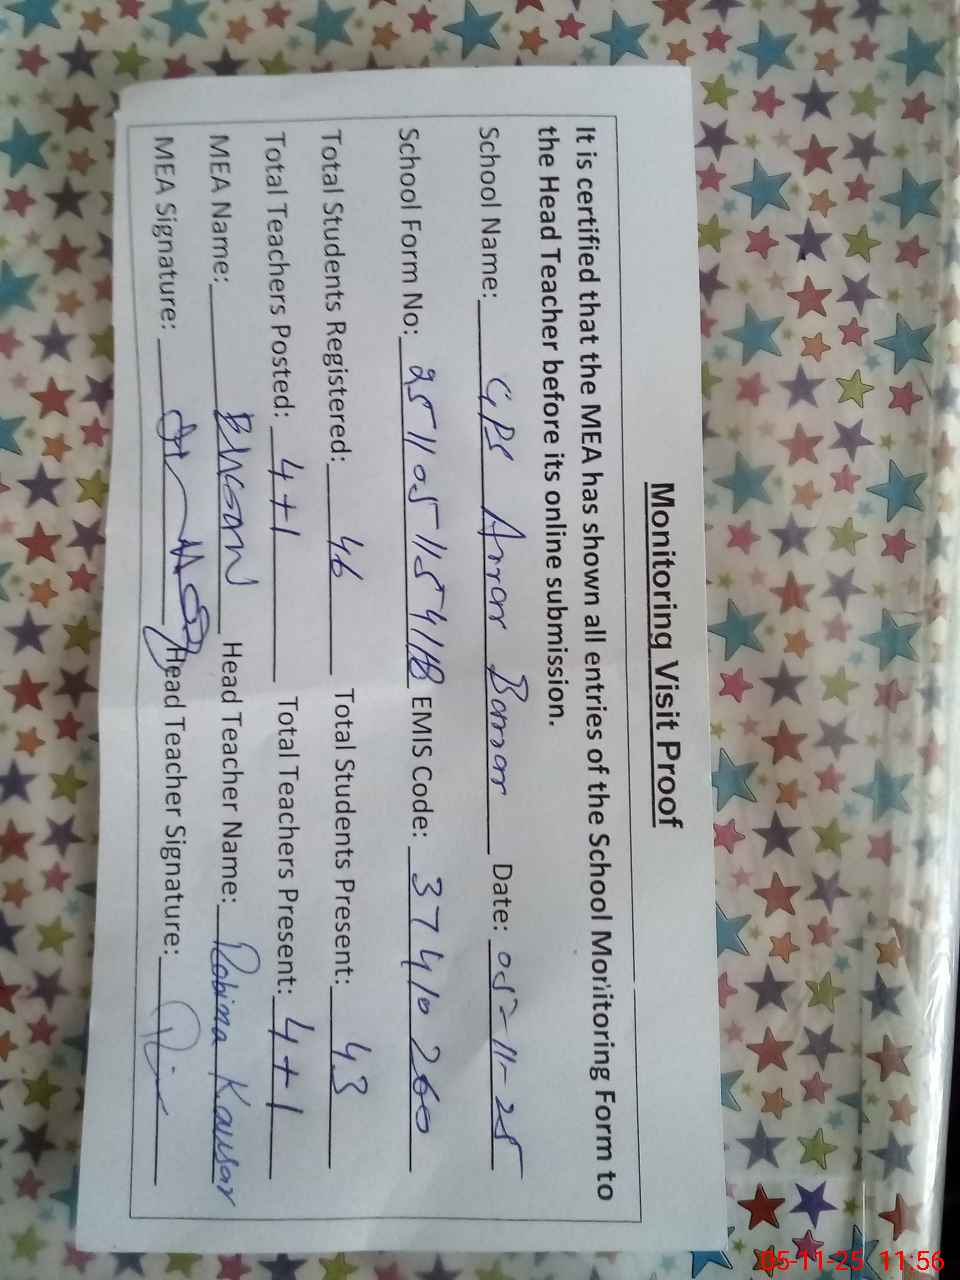 Monitoring Visit Proof
It is certified that the MEA has shown all entries of the School Monitoring Form to
the Head Teacher before its online submission.
School Name: GPS Arrar Banar Date: 05-11-25
School Form No: 2511051154118 EMIS Code: 37410260
Total Students Registered: 46 Total Students Present: 43
Total Teachers Posted: 4+1 Total Teachers Present: 4+1
MEA Name: Head Teacher Name: Robina Kausar
MEA Signature: Head Teacher Signature:
05-11-25 11:56